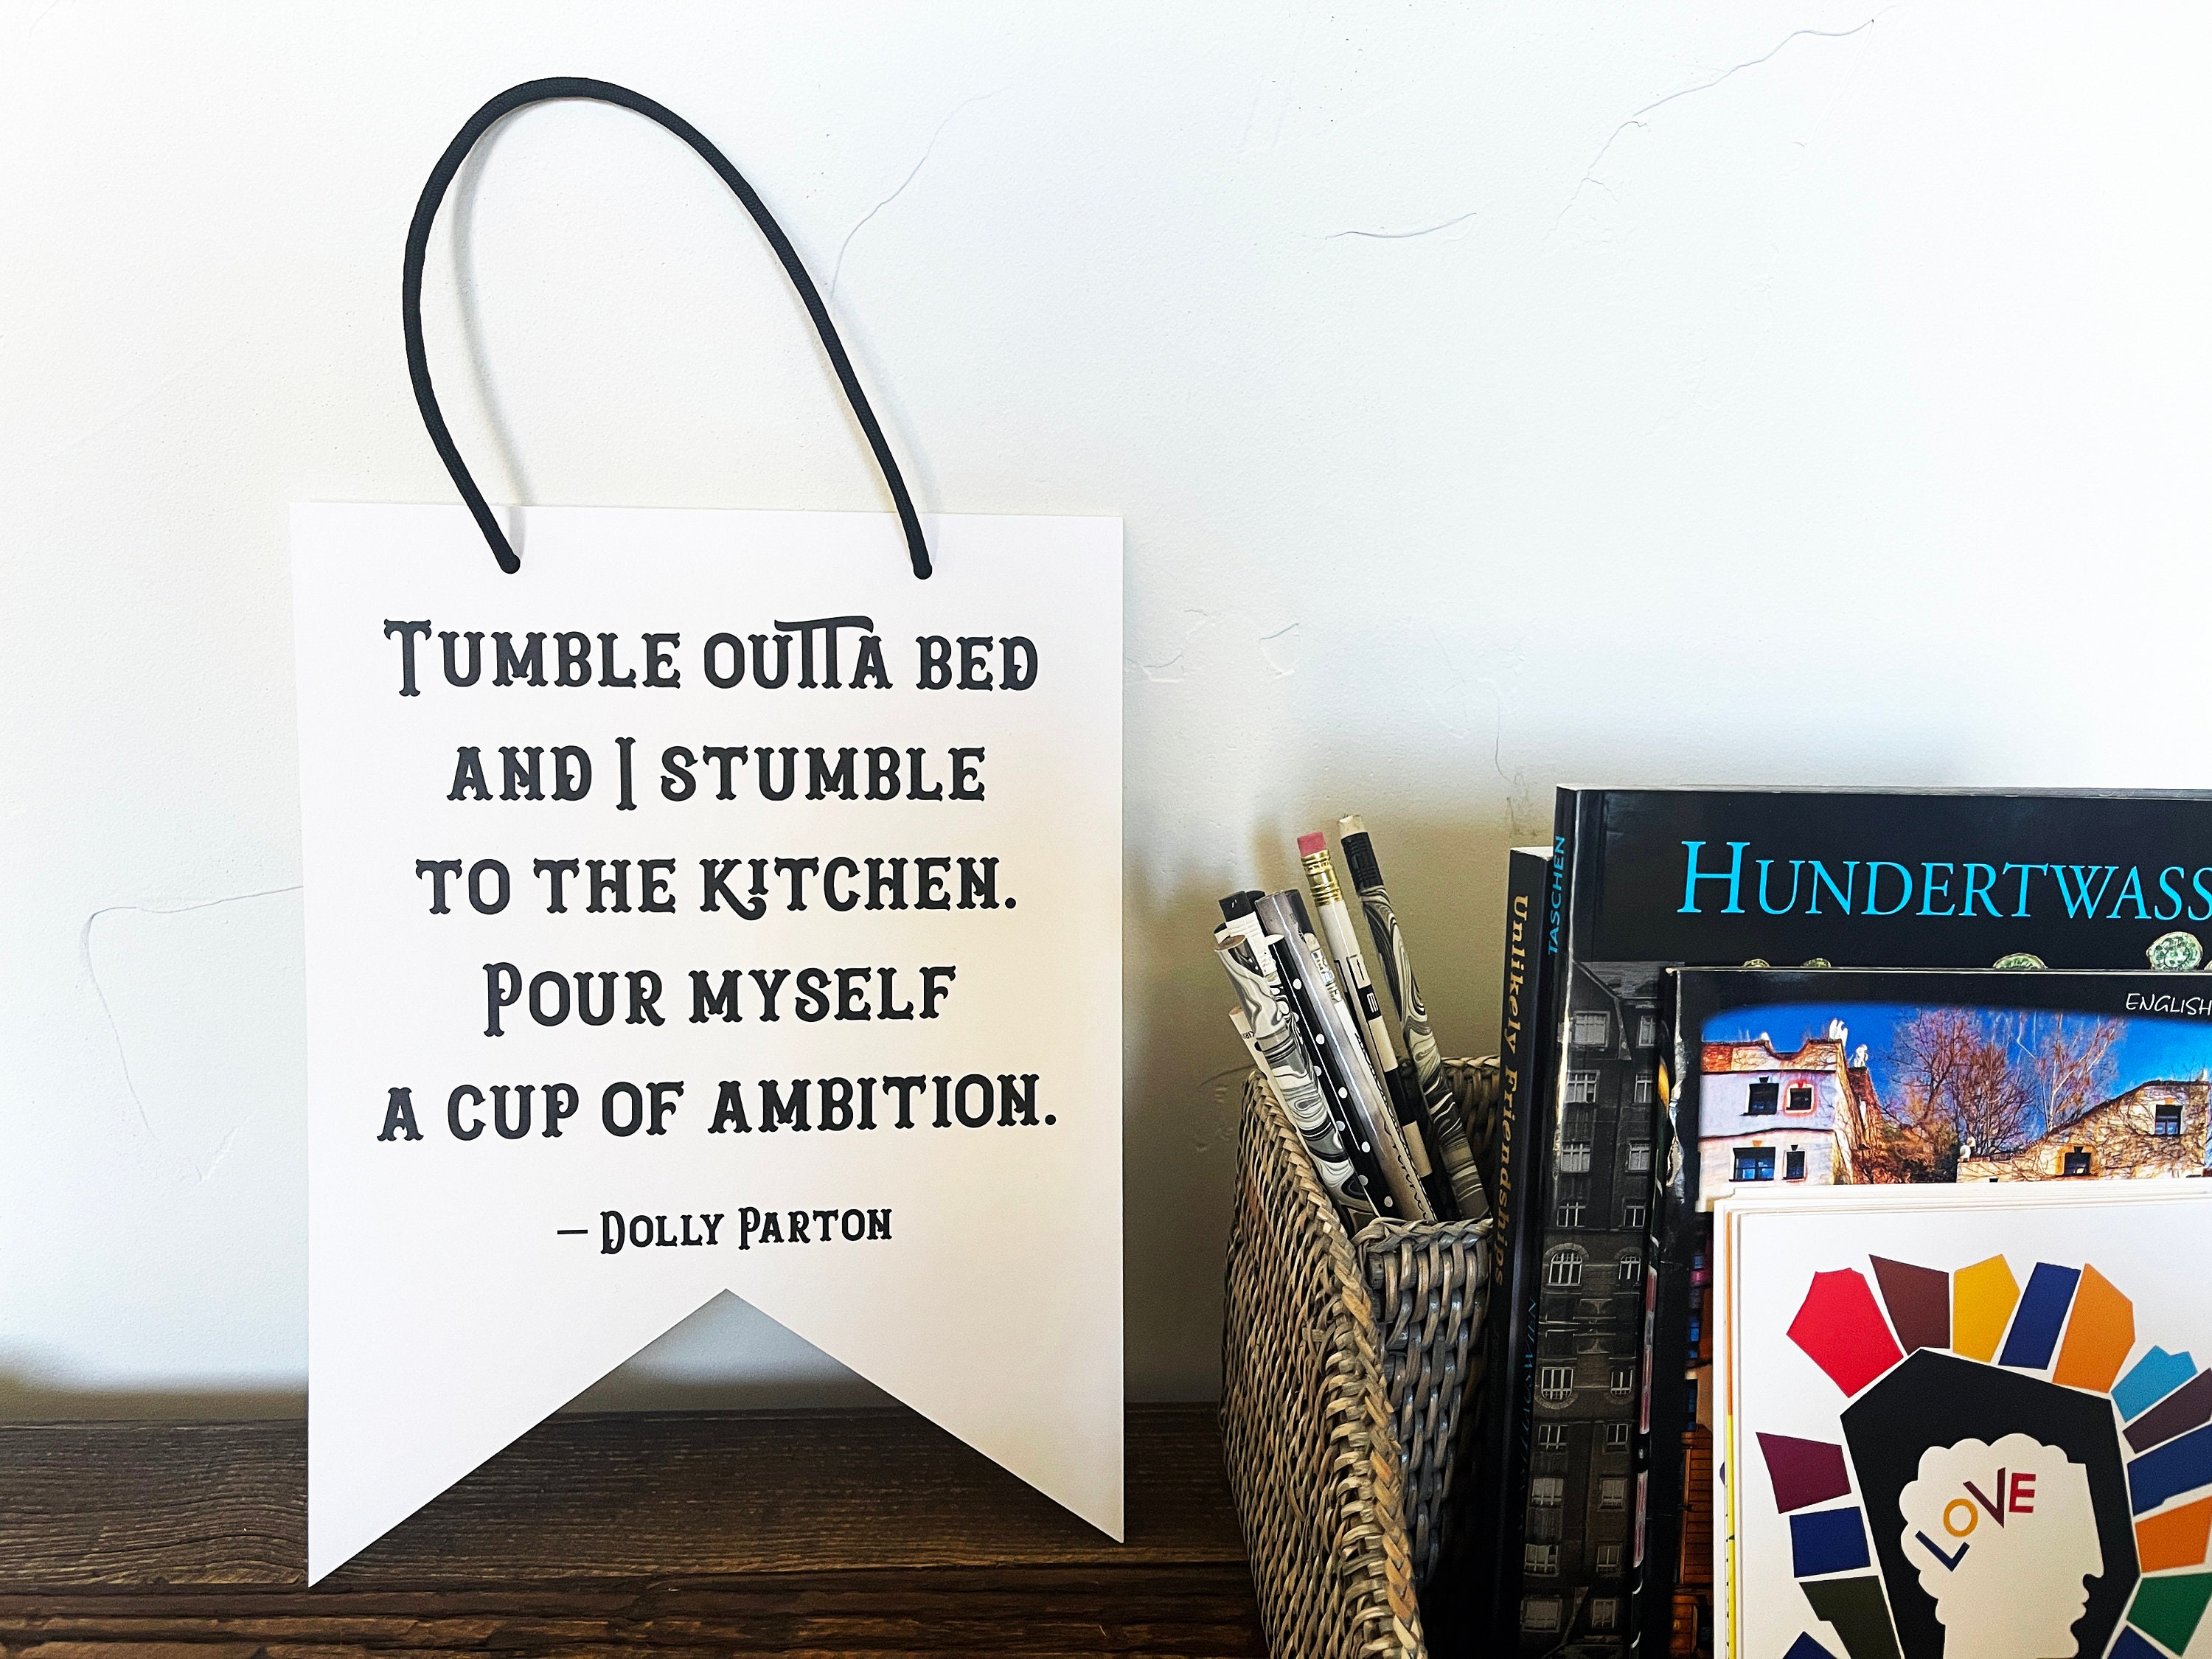 Tumble outta bed
and I stumble
to the kitchen.
Pour myself
a cup of ambition.
— Dolly Parton
Unlikely Friendships
TASCHEN
HUNDERTWASS
ENGLISH
LOVE